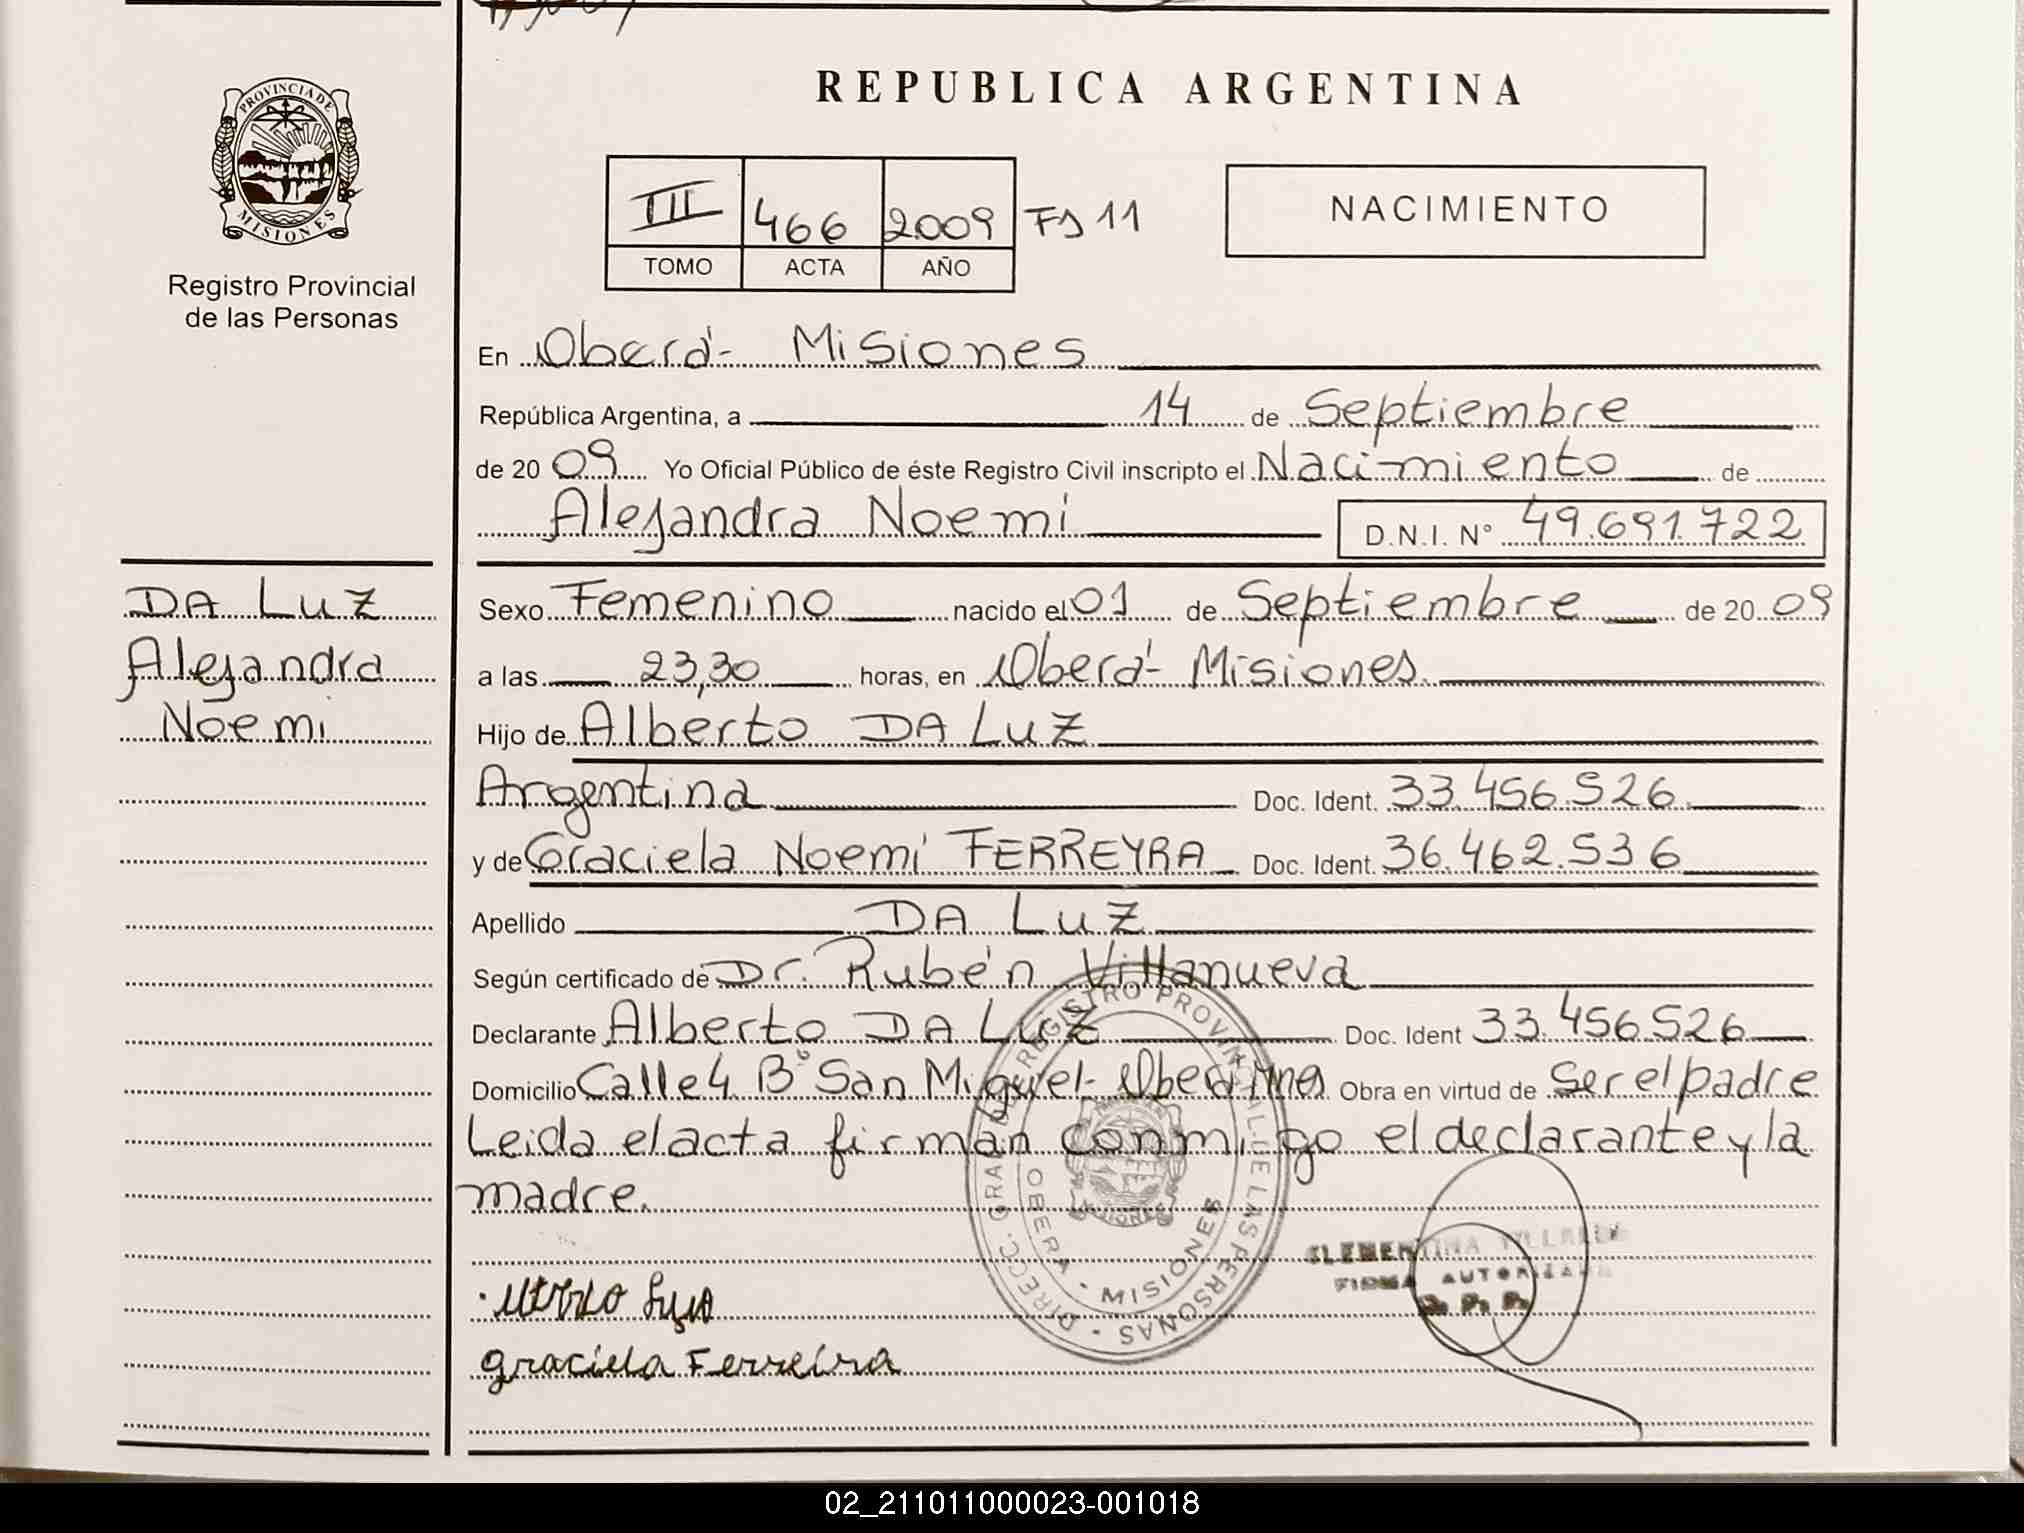 REPUBLICA ARGENTINA
PROVINCIA DE
MISIONES
Registro Provincial
de las Personas
III 466 2009 Fº 11
TOMO ACTA AÑO
NACIMIENTO
En Oberá - Misiones
República Argentina, a 14 de Septiembre
de 20 09 Yo Oficial Público de éste Registro Civil inscripto el Nacimiento de
Alejandra Noemí D.N.I. Nº 49.691.722
DA LUZ
Alejandra
Noemi
Sexo Femenino nacido el 01 de Septiembre de 20 09
a las 23,30 horas, en Oberá - Misiones
Hijo de Alberto DA LUZ
Argentina Doc. Ident. 33.456.526
y de Graciela Noemí FERREYRA Doc. Ident. 36.462.536
Apellido DA LUZ
Según certificado de Dr. Rubén Villanueva
Declarante Alberto DA LUZ Doc. Ident 33.456.526
Domicilio Calle 4 Bº San Miguel - Oberá Mnes Obra en virtud de Ser el padre
Leida el acta firman conmigo el declarante y la
madre.
DIRECC. GRAL. DE REGISTRO PROVINCIAL DE LAS PERSONAS
OBERA - MISIONES
CLEMENTINA
FIRMA AUTORIZADA
R. P. P.
graciela Ferreira
02_211011000023-001018